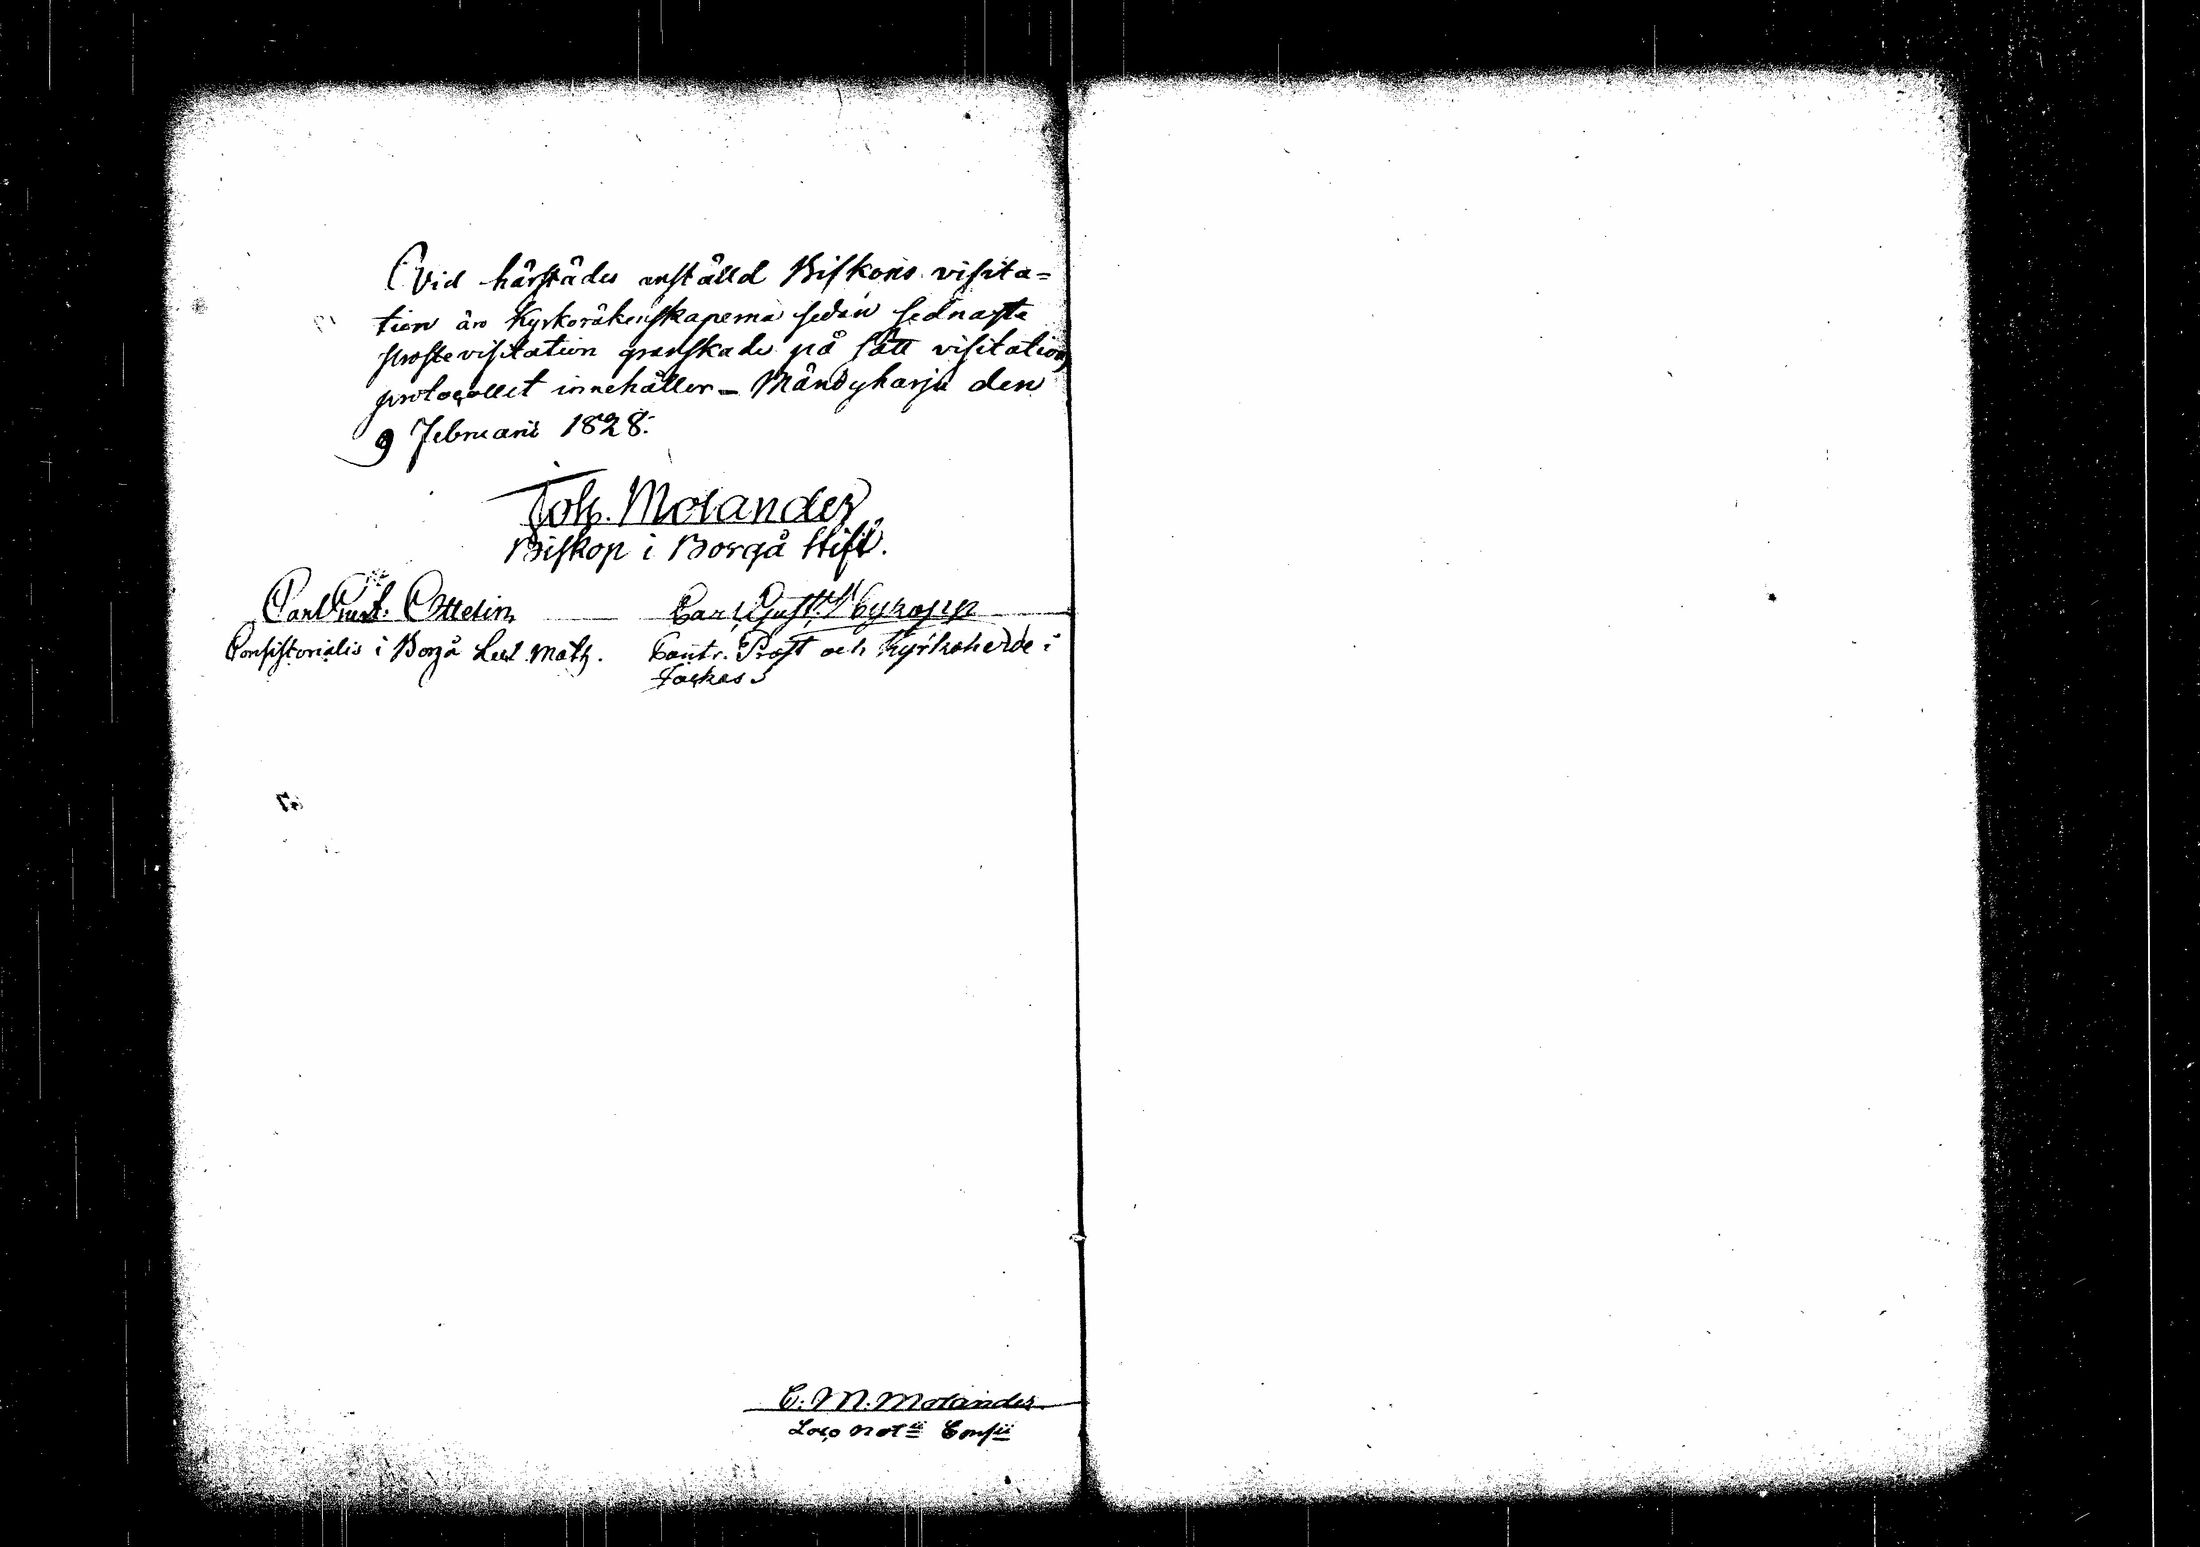 Vid härstädes anställd Biskops visita=
tion äro Kyrkoräkenskaperna sedan sednaste
prostevisitation granskade på sätt visitations
protocollet innehåller – Mändyharju den
9 Februarii 1828.
Joh. Molander
Biskop i Borgå Stift.
Carl Gust. Ottelin
Carl Gust.
Consistorialis i Borgå Lect. Math.
Contr. Prost och Kyrkoherde i
Jockas
C. M. Molander
Loco Not:ii Cons:ii